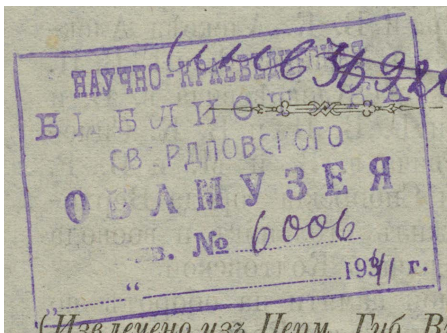 НАУЧНО-КРАЕВЕДЧЕСКАЯ
БИБЛИОТЕКА
СВЕРДЛОВСКОГО
ОБЛМУЗЕЯ
Инв. № 6006
"    " 1941 г.
(Извлечено изъ Перм. Губ. В